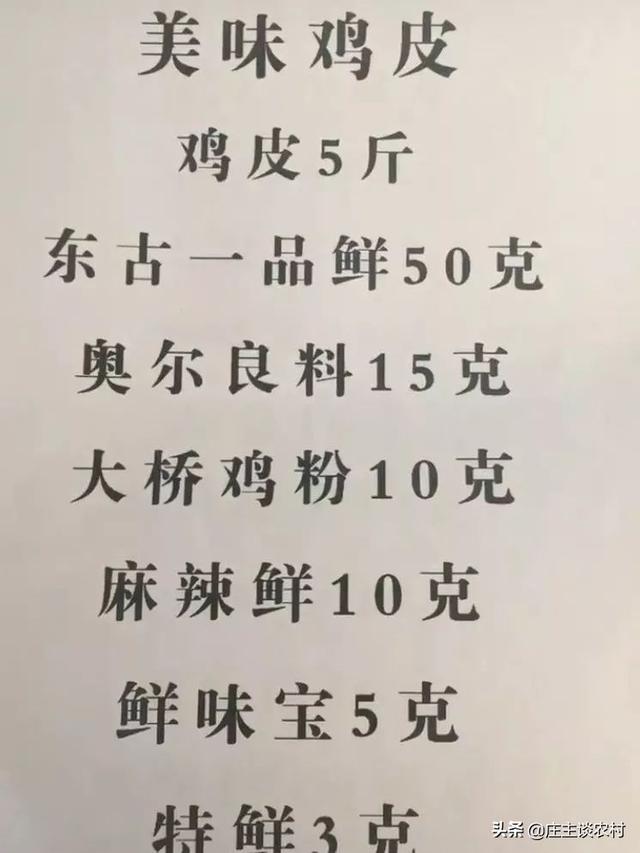 美味鸡皮
鸡皮5斤
东古一品鲜50克
奥尔良料15克
大桥鸡粉10克
麻辣鲜10克
鲜味宝5克
特鲜3克
头条 @庄主谈农村